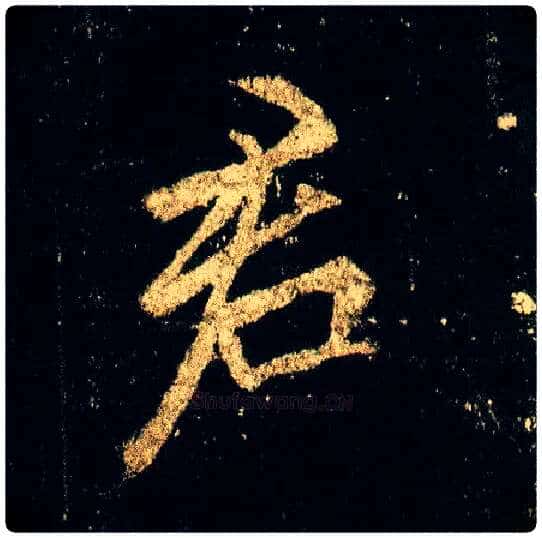 君
Shufawang.CN